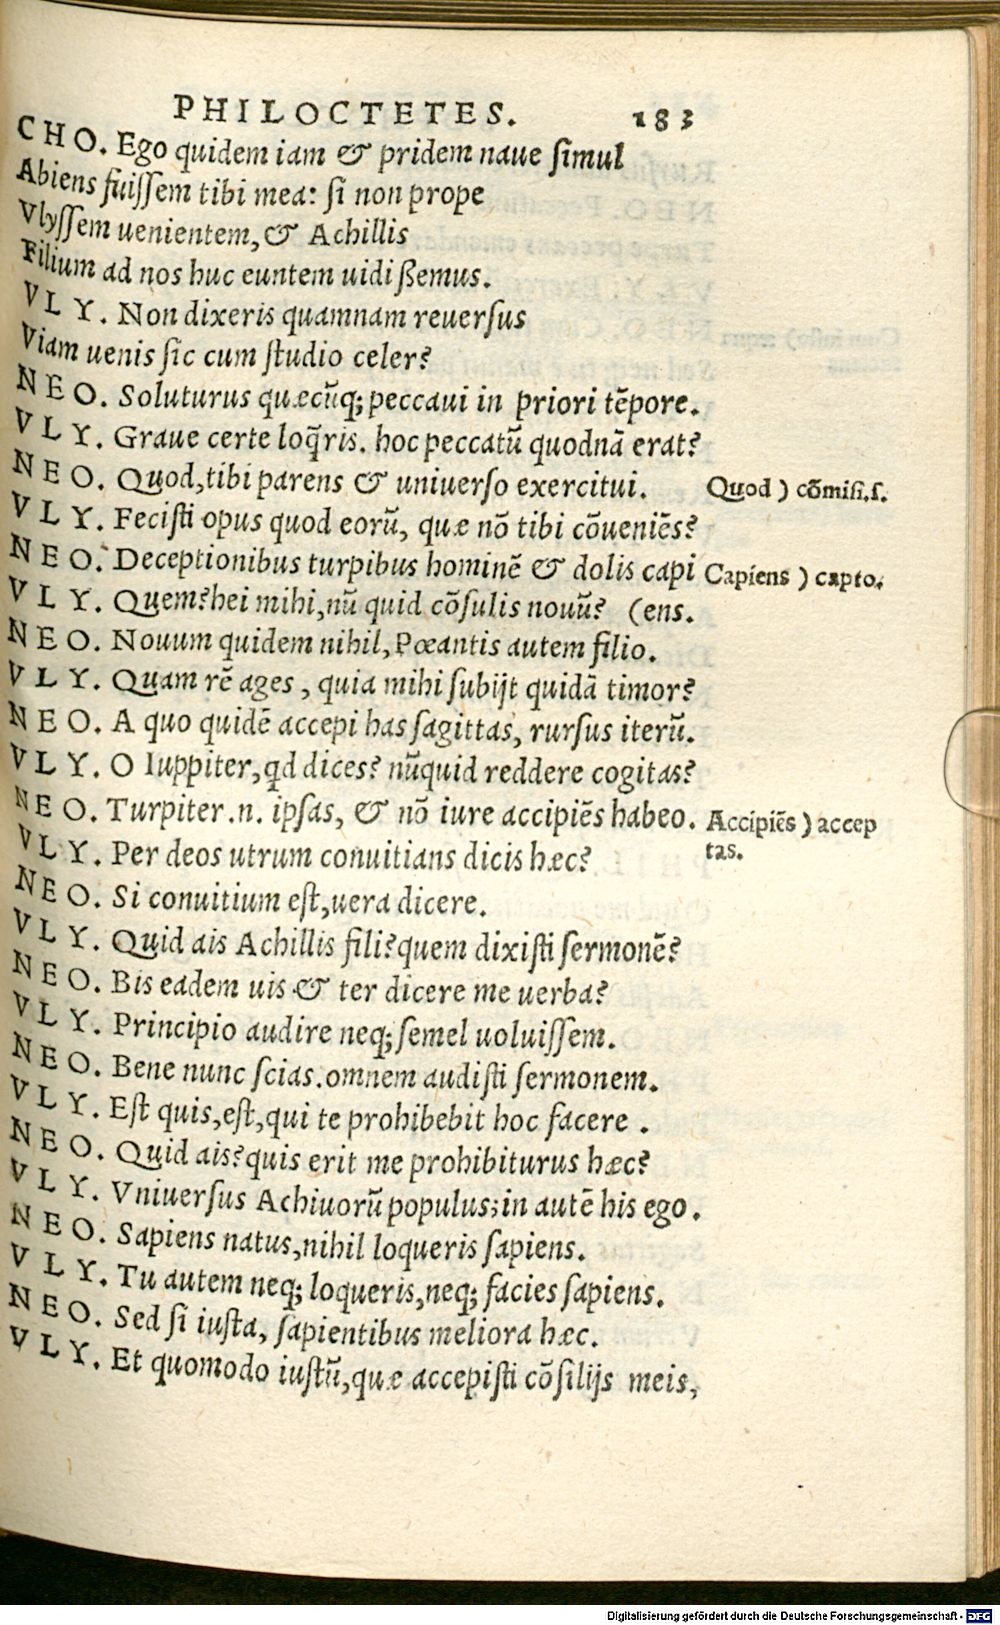 PHILOCTETES. 183
CHO. Ego quidem iam & pridem naue ſimul
Abiens fuiſſem tibi mea: ſi non prope
Vlyſſem uenientem, & Achillis
Filium ad nos huc euntem uidißemus.
VLY. Non dixeris quamnam reuerſus
Viam uenis ſic cum ſtudio celer?
NEO. Soluturus quæcūq; peccaui in priori tēpore.
VLY. Graue certe loq̄ris. hoc peccatū quodnā erat?
NEO. Quod, tibi parens & uniuerſo exercitui. Quod ) cōmiſi.ſ.
VLY. Feciſti opus quod eorū, quæ nō tibi cōueniēs?
NEO. Deceptionibus turpibus hominē & dolis capi Capiens ) capto.
VLY. Quem? hei mihi, nū quid cōſulis nouū? (ens.
NEO. Nouum quidem nihil, Pœantis autem filio.
VLY. Quam rē ages, quia mihi ſubijt quidā timor?
NEO. A quo quidē accepi has ſagittas, rurſus iterū.
VLY. O Iuppiter, qd dices? nūquid reddere cogitas?
NEO. Turpiter .n. ipſas, & nō iure accipiēs habeo. Accipiēs ) accep
tas.
VLY. Per deos utrum conuitians dicis hæc?
NEO. Si conuitium eſt, uera dicere.
VLY. Quid ais Achillis fili? quem dixiſti ſermonē?
NEO. Bis eadem uis & ter dicere me uerba?
VLY. Principio audire neq; ſemel uoluiſſem.
NEO. Bene nunc ſcias. omnem audiſti ſermonem.
VLY. Eſt quis, eſt, qui te prohibebit hoc facere .
NEO. Quid ais? quis erit me prohibiturus hæc?
VLY. Vniuerſus Achiuorū populus; in autē his ego.
NEO. Sapiens natus, nihil loqueris ſapiens.
VLY. Tu autem neq; loqueris, neq; facies ſapiens.
NEO. Sed ſi iuſta, ſapientibus meliora hæc.
VLY. Et quomodo iuſtū, quæ accepiſti cōſilijs meis,
Digitalisierung gefördert durch die Deutsche Forschungsgemeinschaft - DFG